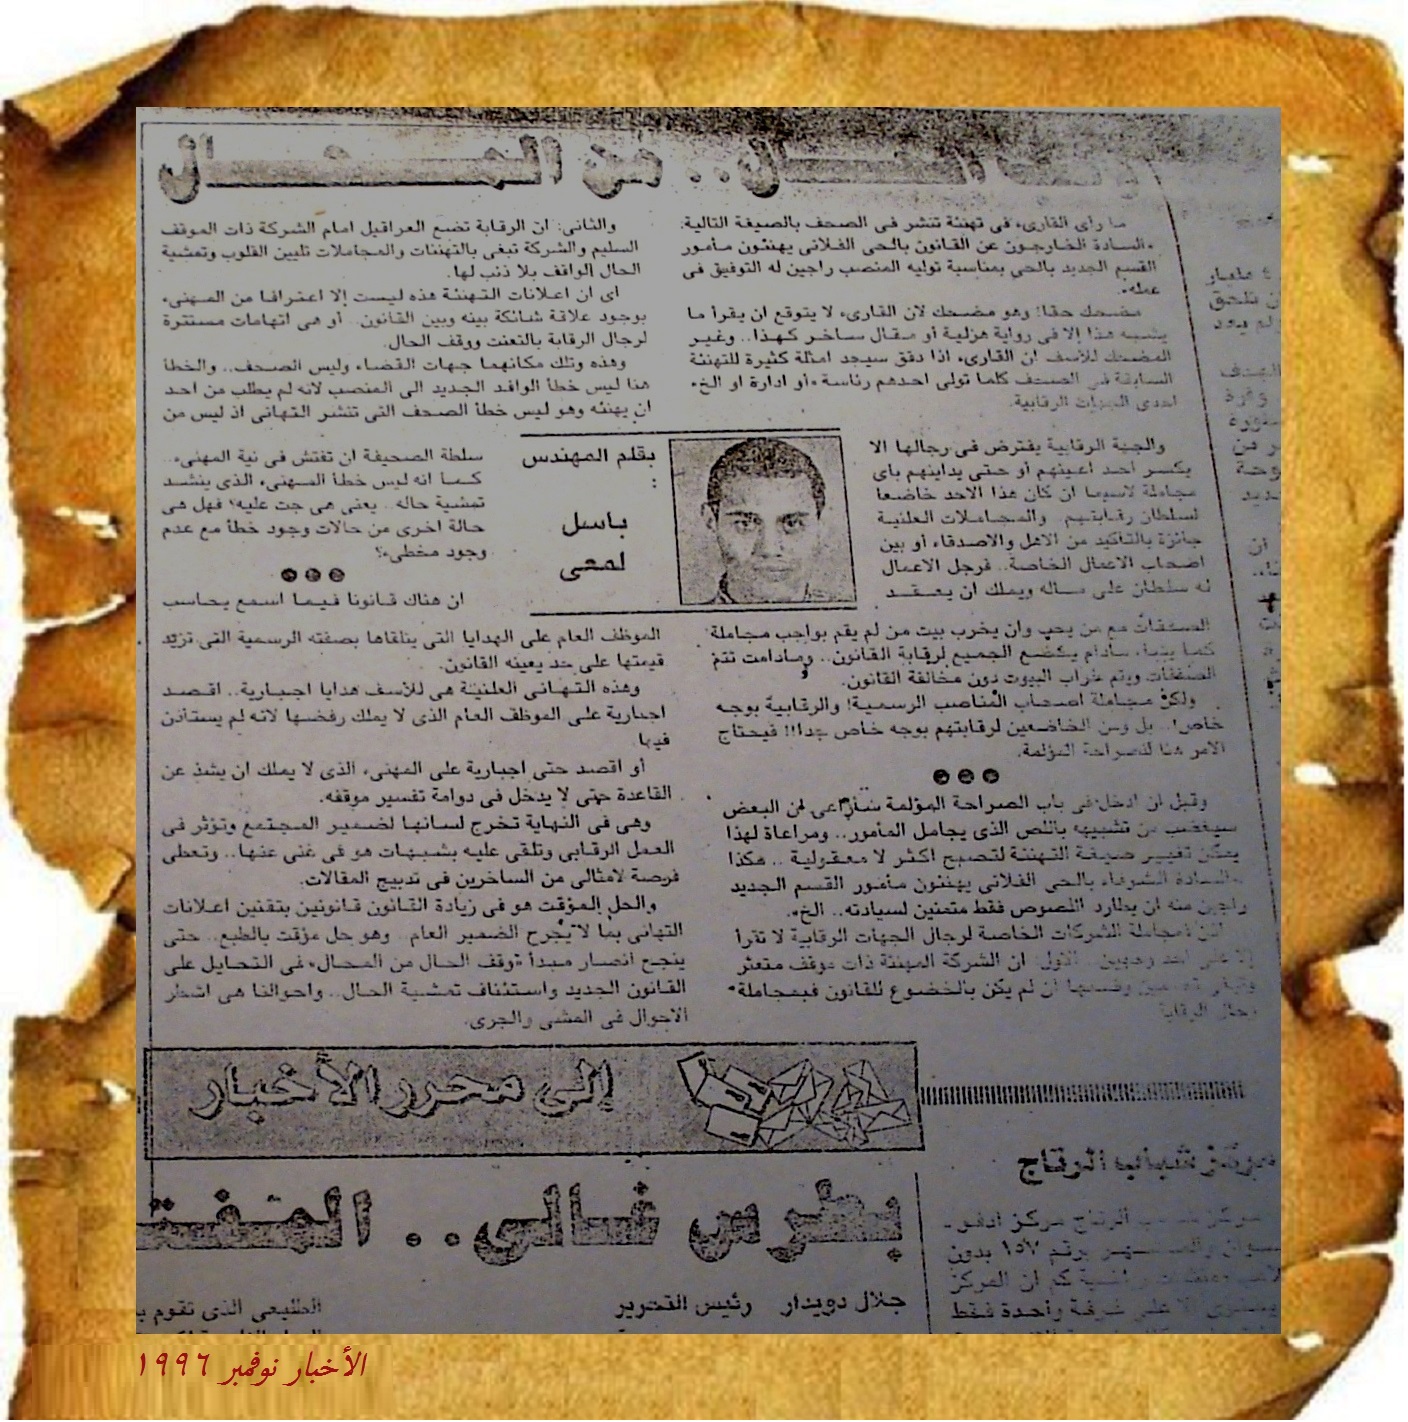 وقف الحال.. من المحال
ما رأى القارىء فى تهنئة تنشر فى الصحف بالصيغة التالية:
«السادة الخارجون عن القانون بالحى الفلانى يهنئون مأمور
القسم الجديد بالحى بمناسبة توليه المنصب راجين له التوفيق فى
عمله».
مضحك حقا! وهو مضحك لان القارىء لا يتوقع ان يقرأ ما
يشبه هذا إلا فى رواية هزلية أو مقال ساخر كهذا.. وغير
المضحك للأسف ان القارىء اذا دقق سيجد امثلة كثيرة للتهنئة
السابقة فى الصحف كلما تولى احدهم رئاسة «أو ادارة او الخ»
احدى الجهات الرقابية.
والجهة الرقابية يفترض فى رجالها الا
يكسر احد اعينهم أو حتى يداينهم باى
مجاملة لاسيما ان كان هذا الاحد خاضعا
لسلطان رقابتهم والمجاملات العلنية
جائزة بالتأكيد من الاهل والاصدقاء أو بين
اصحاب الاعمال الخاصة.. فرجل الاعمال
له سلطان على ماله ويملك ان يعقد
الصفقات مع من يحب وان يخرب بيت من لم يقم بواجب مجاملة
كما يشاء مادام يخضع الجميع لرقابة القانون.. ومادامت تتم
الصفقات ويتم خراب البيوت دون مخالفة القانون.
ولكن مجاملة اصحاب المناصب الرسمية! والرقابية بوجه
خاص!.. بل ومن الخاضعين لرقابتهم بوجه خاص جدا!! فيحتاج
الامر هنا للصراحة المؤلمة.
وقبل ان ادخل فى باب الصراحة المؤلمة سأراعى ان البعض
سيغضب من تشبيهه باللص الذى يجامل المأمور.. ومراعاة لهذا
يمكن تغيير صيغة التهنئة لتصبح اكثر لا معقولية .. هكذا
«السادة الشرفاء بالحى الفلانى يهنئون مأمور القسم الجديد
راجين منه ان يطارد اللصوص فقط متمنين لسيادته.. الخ».
مجاملة الشركات الخاصة لرجال الجهات الرقابية لا تقرأ
إلا على احد وجهين.. الاول: ان الشركة المهنئة ذات موقف متعثر
ان لم يكن بالخضوع للقانون فبمجاملة
رجال الرقابة
والثانى: ان الرقابة تضع العراقيل امام الشركة ذات الموقف
السليم والشركة تبغى بالتهنئات والمجاملات تليين القلوب وتمشية
الحال الواقف بلا ذنب لها.
اى ان اعلانات التهنئة هذه ليست إلا اعترافا من المهنىء
بوجود علاقة شائكة بينه وبين القانون.. أو هى اتهامات مستترة
لرجال الرقابة بالتعنت ووقف الحال.
وهذه وتلك مكانهما جهات القضاء وليس الصحف.. والخطأ
هنا ليس خطأ الوافد الجديد الى المنصب لانه لم يطلب من احد
ان يهنئه وهو ليس خطأ الصحف التى تنشر التهانى اذ ليس من
سلطة الصحيفة ان تفتش فى نية المهنىء..
كما انه ليس خطأ المهنىء الذى ينشد
تمشية حاله.. يعنى هى جت عليه؟ فهل هى
حالة اخرى من حالات وجود خطأ مع عدم
وجود مخطىء؟
ان هناك قانونا فيما اسمع يحاسب
الموظف العام على الهدايا التى يتلقاها بصفته الرسمية التى تزيد
قيمتها على حد يعينه القانون.
وهذه التهانى العلنية هى للأسف هدايا اجبارية.. اقصد
اجبارية على الموظف العام الذى لا يملك رفضها لانه لم يستأذن
فيها.
أو اقصد حتى اجبارية على المهنىء الذى لا يملك ان يشذ عن
القاعدة حتى لا يدخل فى دوامة تفسير موقفه.
وهى فى النهاية تخرج لسانها لضمير المجتمع وتؤثر فى
العمل الرقابى وتلقى عليه بشبهات هو فى غنى عنها.. وتعطى
فرصة لامثالى من الساخرين فى تدبيج المقالات.
والحل المؤقت هو فى زيادة القانون قانونين بتقنين اعلانات
التهانى بما لا يجرح الضمير العام.. وهو حل مؤقت بالطبع.. حتى
ينجح انصار مبدأ «وقف الحال من المحال» فى التحايل على
القانون الجديد واستئناف تمشية الحال.. واحوالنا هى اشطر
الاحوال فى المشى والجرى.
بقلم المهندس
:
باسل
لمعى
إلى محرر الأخبار
بطرس غالى.. المفت
جلال دويدار رئيس التحرير
الطبيعى الذى تقوم ب
مركز شباب الرقاج
الرقاج مركز ادفو ـ
برقم ١٥٧ بدون
كم ان المركز
على غرفة واحدة فقط
الأخبار نوفمبر ١٩٩٦